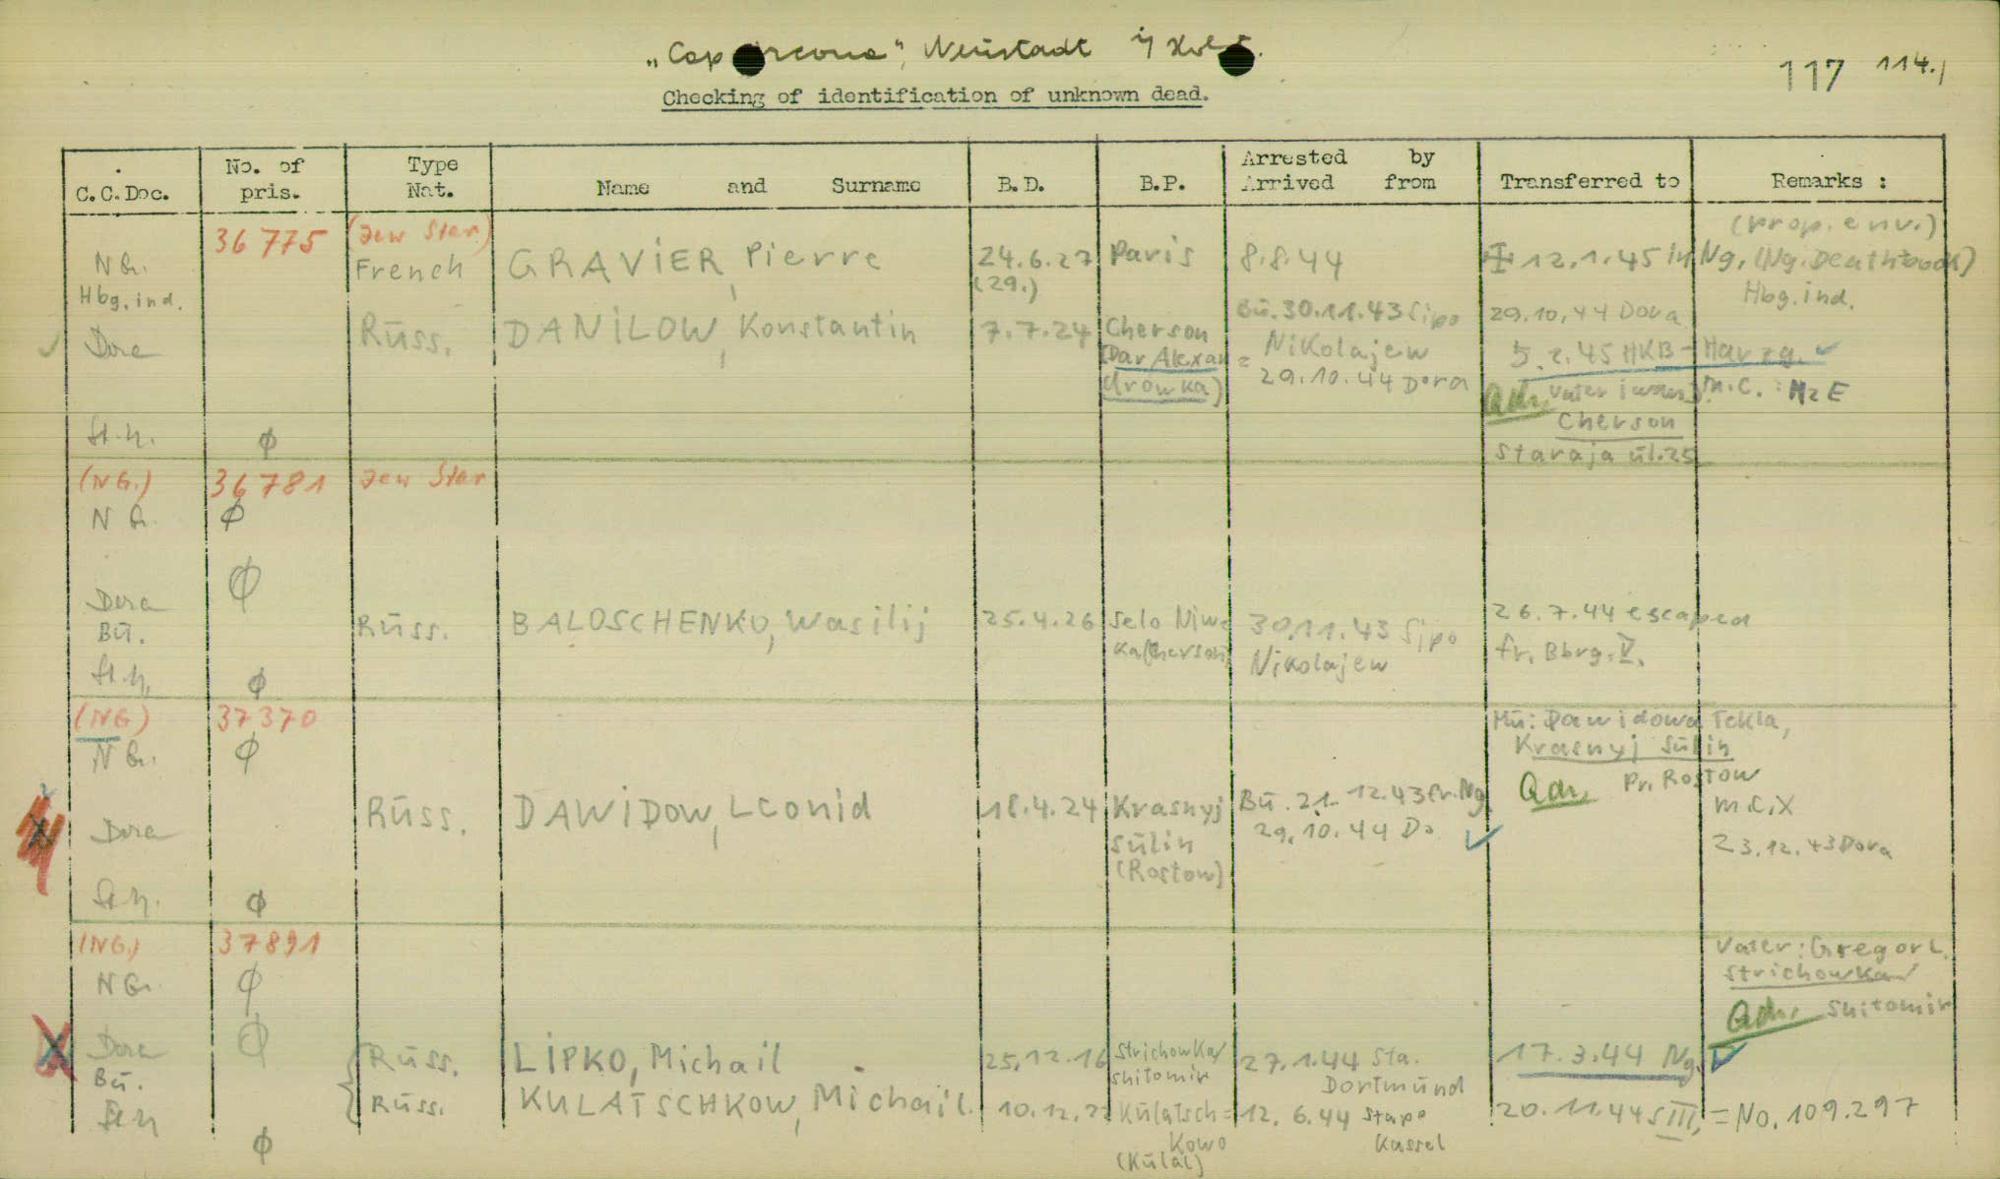 „Cap Arcona", Neustadt i/ Holst.
117 114./
Checking of identification of unknown dead.
C.C.Doc. No. of pris. Type Nat. Name and Surname B.D. B.P. Arrested by Arrived from Transferred to Remarks :
36 775 (Jew Star) (prop. env.)
NG. French GRAVIER, Pierre 24.6.27 Paris 8.8.44 12.1.45 in Ng. (Ng. Deathbook)
Hbg. ind. (29.) Hbg. ind.
Bū. 30.11.43 Sipo 29.10.44 Dora
Dora Rūss. DANILOW, Konstantin 7.7.24 Cherson Nikolajew 5.2.45 HKB - Harzg.
(Dar Alexan = 29.10.44 Dora
drowka) Adr. Vater m.C. : MzE
Cherson
St.h. ϕ Staraja ūl. 25
(NG.) 36781 Jew Star
NG. ϕ
ϕ
Dora 26.7.44 escaped
Bū. Rūss. BALOSCHENKO, Wasilij 25.4.26 Selo Niw= 30.11.43 Sipo fr. Bbrg. V.
ka (Cherson) Nikolajew
St.h. ϕ
(NG) 37370 Mū: Dawidowa Tekla,
NG. ϕ Krasnyj Sūlin
Adr. Pr. Rostow
Rūss. DAWIDOW, Leonid 18.4.24 Krasnyj Bū. 21.12.43 fr. Ng m.C. X
Dora Sūlin 29.10.44 Do 23.12.43 Dora
(Rostow)
St.h. ϕ
(NG.) 37891 Vater: Gregor L.
NG. ϕ Strichowka/
Adr. Shitomir
Dora ϕ Rūss. LIPKO, Michail 25.12.16 Strichowka/ 27.1.44 Sta. 17.3.44 Ng.
Bū. Shitomir Dortmūnd
St.h Rūss. KULATSCHKOW, Michail. 10.12.22 Kūlatsch= 12.6.44 Stapo 20.11.44 S III, = No. 109.297
ϕ kowo Kassel
(Kūlal)